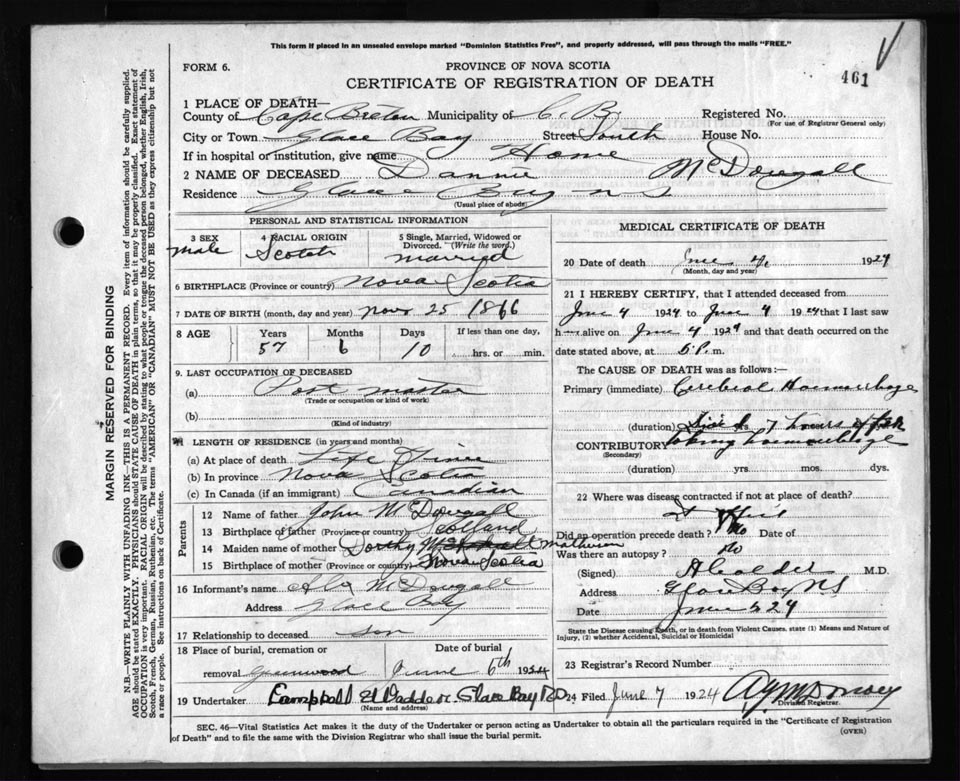 This form if placed in an unsealed envelope marked "Dominion Statistics Free", and properly addressed, will pass through the mails "FREE."
FORM 6.
PROVINCE OF NOVA SCOTIA
CERTIFICATE OF REGISTRATION OF DEATH
461
1 PLACE OF DEATH—
County of Cape Breton Municipality of C.B. Registered No.
(For use of Registrar General only)
City or Town Glace Bay Street South House No.
If in hospital or institution, give name Home
2 NAME OF DECEASED Dannie McDougall
Residence Glace Bay N S
(Usual place of abode)
PERSONAL AND STATISTICAL INFORMATION
3 SEX male
4 RACIAL ORIGIN Scotch
5 Single, Married, Widowed or Divorced. (Write the word.) married
6 BIRTHPLACE (Province or country) Nova Scotia
7 DATE OF BIRTH (month, day and year) Nov 25 1866
8 AGE Years 57 Months 6 Days 10 If less than one day, hrs. or min.
9. LAST OCCUPATION OF DECEASED
(a) Post master
(Trade or occupation or kind of work)
(b)
(Kind of industry)
LENGTH OF RESIDENCE (in years and months)
(a) At place of death Life Time
(b) In province Nova Scotia
(c) In Canada (if an immigrant) Canadian
Parents
12 Name of father John McDougall
13 Birthplace of father (Province or country) Scotland
14 Maiden name of mother Dorthy Matheson
15 Birthplace of mother (Province or country) Nova Scotia
16 Informant's name Alx McDougall
Address Glace Bay
17 Relationship to deceased son
18 Place of burial, cremation or removal Greenwood Date of burial June 6th 1924
19 Undertaker Campbell Glace Bay
(Name and address)
MEDICAL CERTIFICATE OF DEATH
20 Date of death June 4, 1924
(Month, day and year)
21 I HEREBY CERTIFY, that I attended deceased from
June 4 1924 to June 4 1924 that I last saw
h alive on June 4 1924 and that death occurred on
date stated above, at 5 P. m.
The CAUSE OF DEATH was as follows:—
Primary (immediate) Cerebral Haemorrhage
(duration) 7 hours after
CONTRIBUTORY taking haemorrhage
(Secondary)
(duration) yrs. mos. dys.
22 Where was disease contracted if not at place of death?
Did an operation precede death? No Date of
Was there an autopsy? No
(Signed) M.D.
Address Glace Bay NS
Date June 5 24
State the Disease causing Death, or in death from Violent Causes, state (1) Means and Nature of Injury, (2) whether Accidental, Suicidal or Homicidal
23 Registrar's Record Number
24 Filed June 7 1924
Division Registrar.
SEC. 46—Vital Statistics Act makes it the duty of the Undertaker or person acting as Undertaker to obtain all the particulars required in the "Certificate of Registration of Death" and to file the same with the Division Registrar who shall issue the burial permit.
(OVER)
MARGIN RESERVED FOR BINDING
N.B.—WRITE PLAINLY WITH UNFADING INK—THIS IS A PERMANENT RECORD. Every item of information should be carefully supplied.
AGE should be stated EXACTLY. PHYSICIANS should STATE CAUSE OF DEATH in plain terms, so that it may be properly classified. Exact statement of
OCCUPATION is very important. RACIAL ORIGIN will be described by stating to what people or tongue the deceased person belonged, whether English, Irish,
Scotch, French, German, Russian, Ruthenian, etc. The terms "AMERICAN" OR "CANADIAN" MUST NOT BE USED as they express citizenship but not
a race or people. See instructions on back of Certificate.